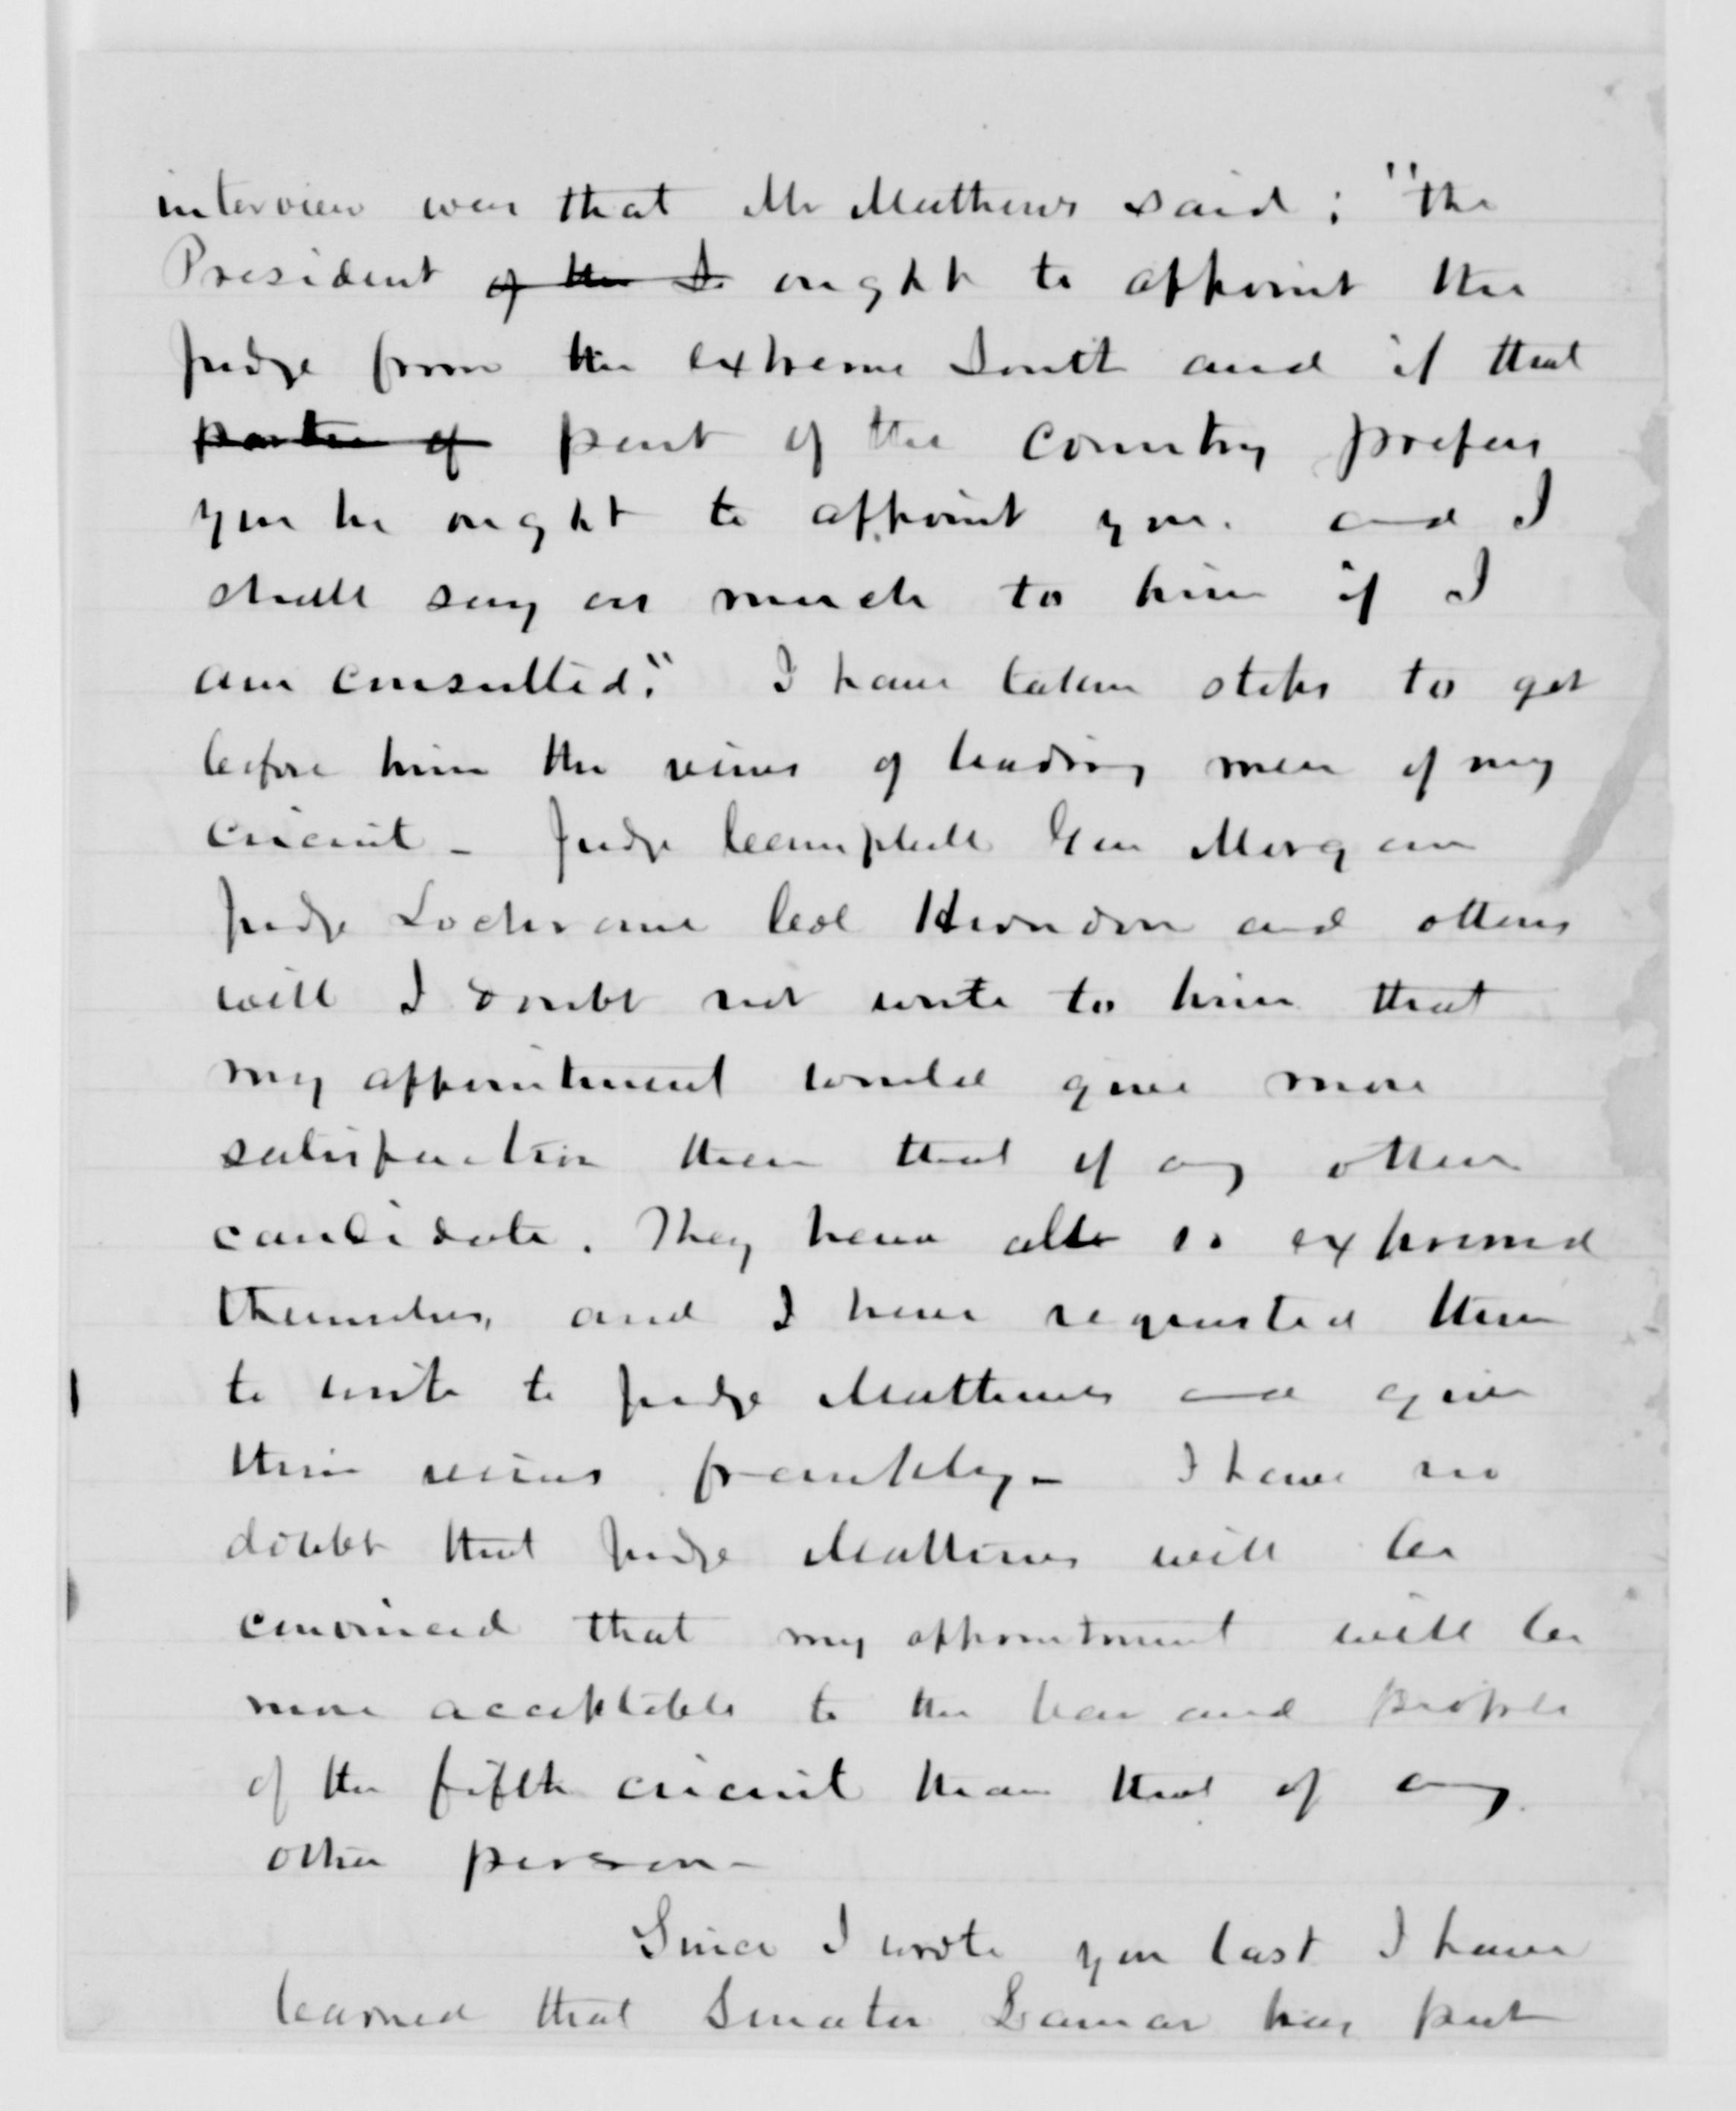 interview was that Mr Matthews said: "the
President of the S. ought to appoint the
Judge from the extreme South and if that
portion of part of the country prefers
you he ought to appoint you. and I
shall say as much to him if I
am consulted." I have taken steps to get
before him the views of leading men of my
circuit - Judge Campbell Gen Morgan
Judge Lochrane Col Herndon and others
will I doubt not write to him that
my appointment would give more
satisfaction than that of any other
candidate. They have all so expressed
themselves, and I have requested them
to write to Judge Matthews and give
their views frankly - I have no
doubt that Judge Matthews will be
convinced that my appointment will be
more acceptable to the bar and people
of the fifth circuit than that of any
other person -
Since I wrote you last I have
learned that Senator Lamar has put